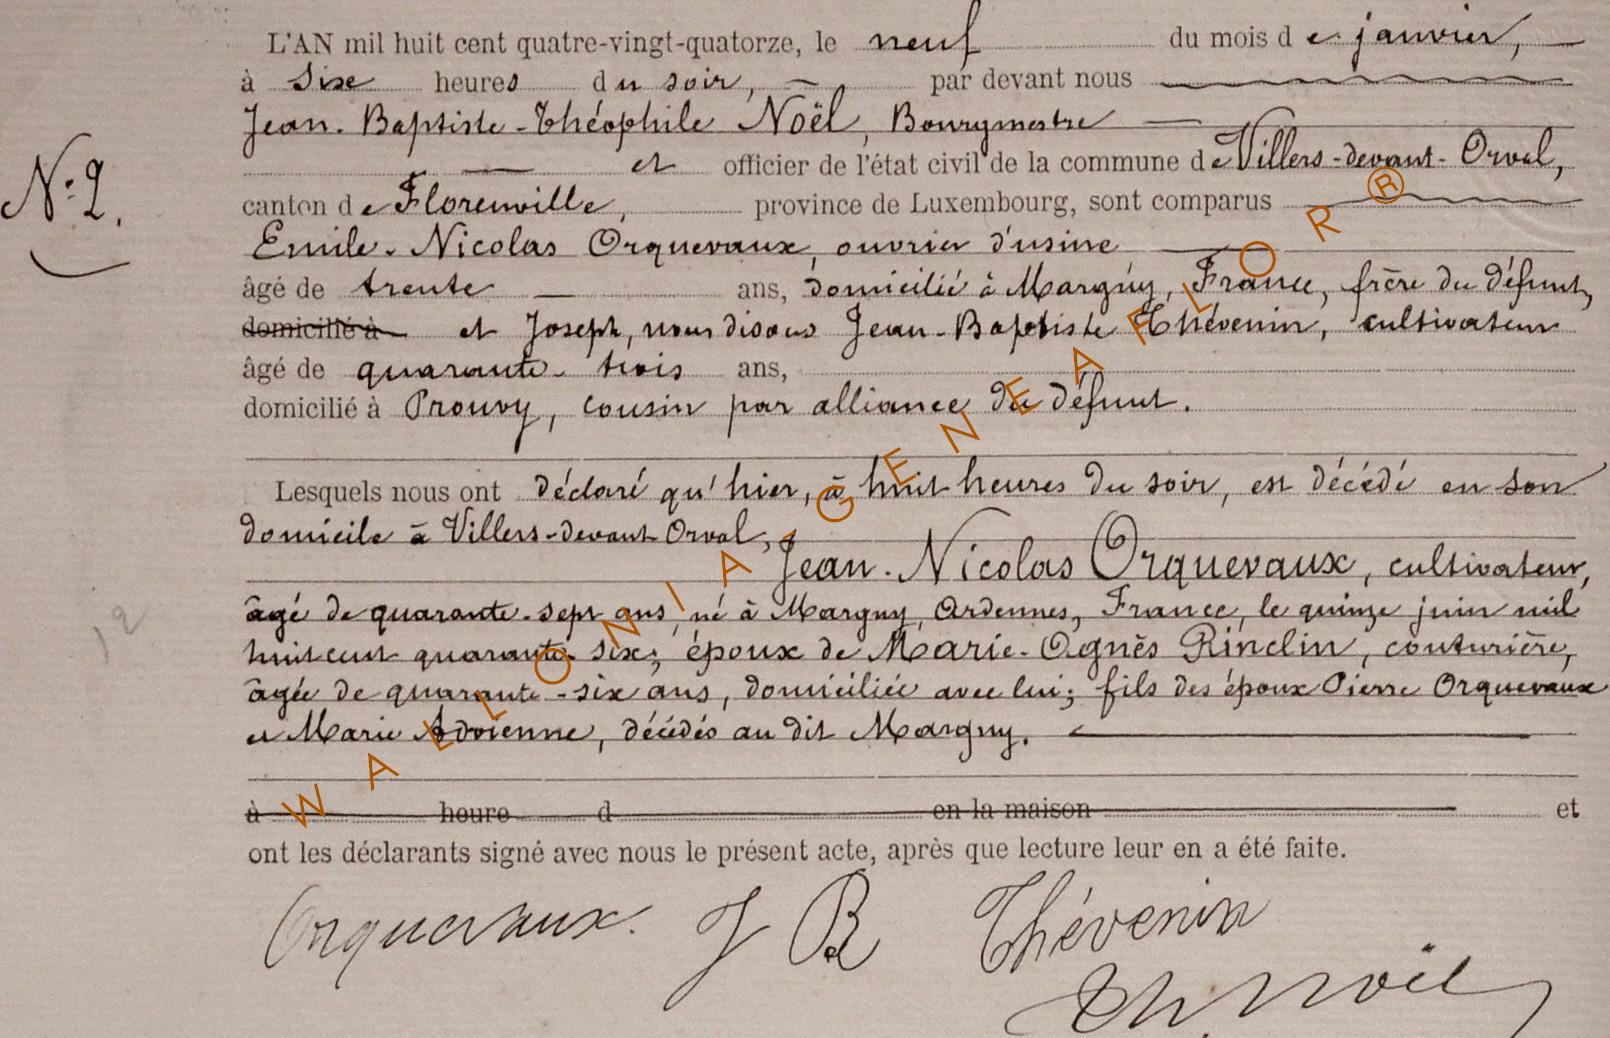 L'AN mil huit cent quatre-vingt-quatorze, le neuf du mois de janvier,
à sixe heures du soir, par devant nous
Jean-Baptiste-Théophile Noël, Bourgmestre
et officier de l'état civil de la commune de Villers-devant-Orval,
N° 2.
canton de Florenville, province de Luxembourg, sont comparus
Emile-Nicolas Orquevaux, ouvrier d'usine
âgé de trente ans, domicilié à Margny, France, frère du défunt,
domicilié à et Joseph, nous disons Jean-Baptiste Thévenin, cultivateur
âgé de quarante-trois ans,
domicilié à Prouvy, cousin par alliance du défunt.
Lesquels nous ont déclaré qu'hier, à huit heures du soir, est décédé en son
domicile à Villers-devant-Orval,
Jean-Nicolas Orquevaux, cultivateur,
âgé de quarante-sept ans, né à Margny, Ardennes, France, le quinze juin mil
huit cent quarante-six; époux de Marie-Agnès Rinclin, couturière,
âgée de quarante-six ans, domiciliée avec lui; fils des époux Pierre Orquevaux
et Marie Advienne, décédés au dit Margny.
à heure d en la maison et
ont les déclarants signé avec nous le présent acte, après que lecture leur en a été faite.
Orquevaux. J B Thévenin
Th. Noël
12
WALLONIA-GENEAFLOR®